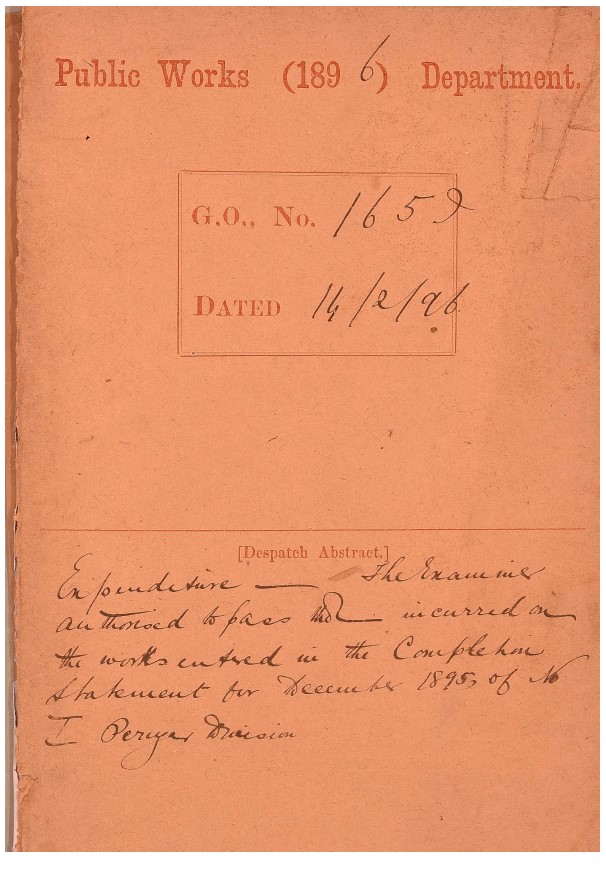 Public Works (1896) Department.
G.O., No. 165
DATED 14/2/96
[Despatch Abstract.]
Expenditure — The Examiner
authorised to pass incurred on
the works entered in the Completion
Statement for December 1895 of No
I Periyar Division